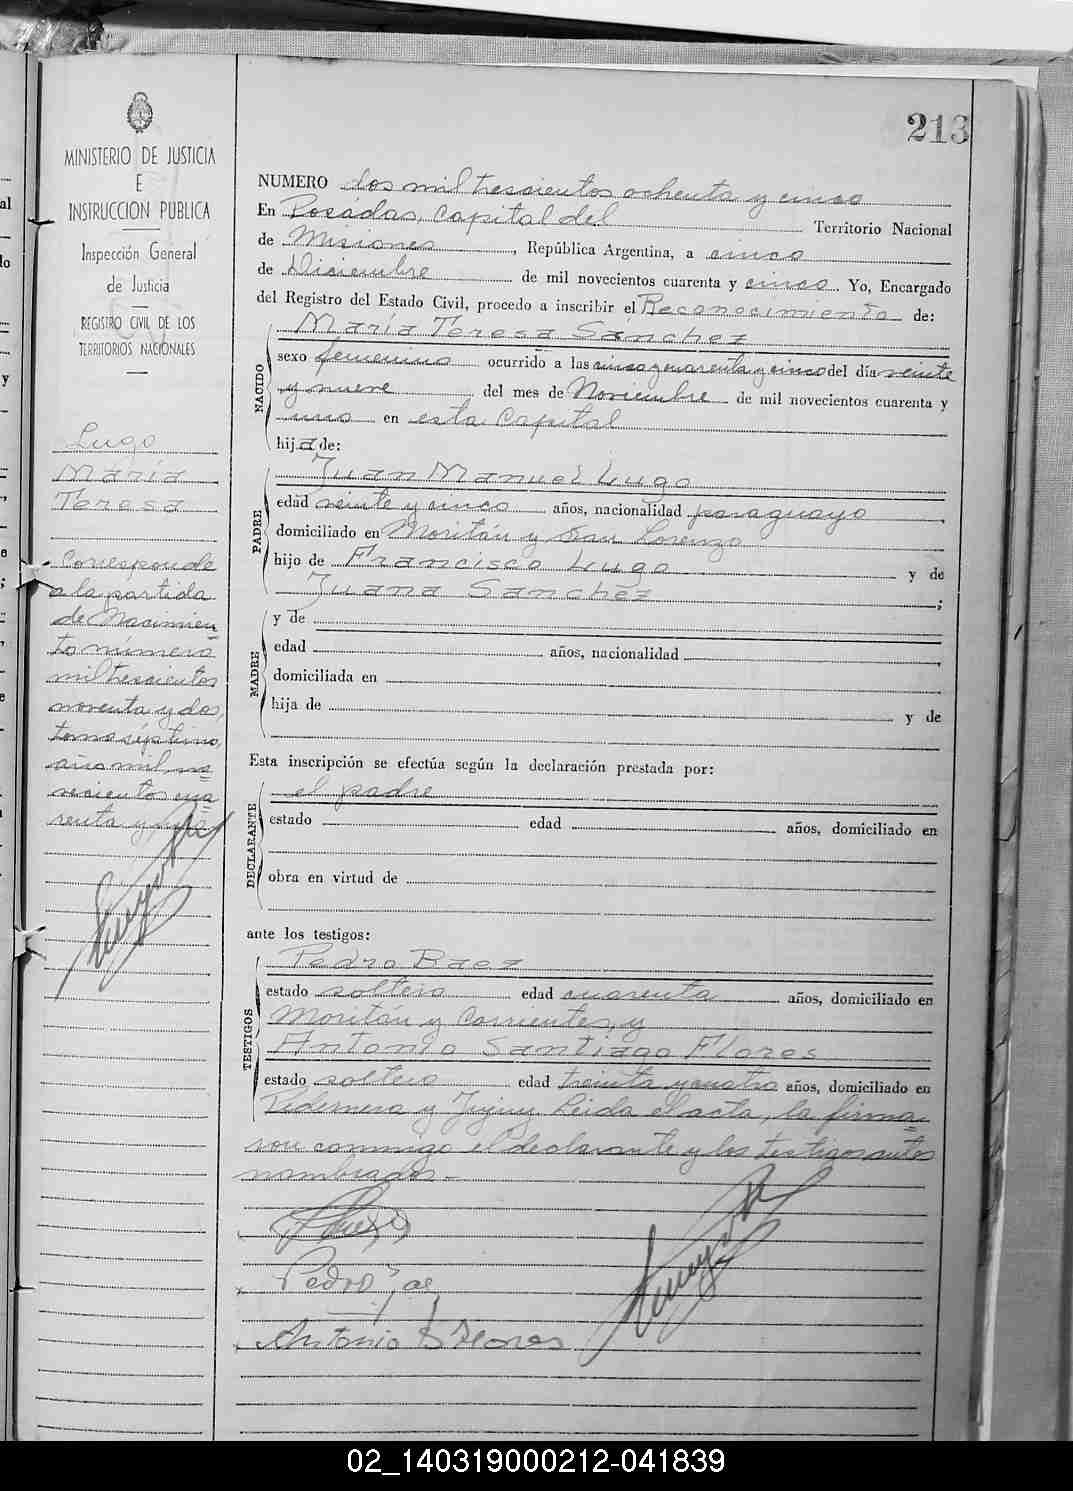 213
MINISTERIO DE JUSTICIA
E
INSTRUCCION PUBLICA
Inspección General
de Justicia
REGISTRO CIVIL DE LOS
TERRITORIOS NACIONALES
Lugo
María
Teresa
corresponde
a la partida
de Nacimien
to número
mil trescientos
noventa y dos,
tomo séptimo,
año mil no
vecientos cua
renta y uno
NUMERO dos mil trescientos ochenta y cinco
En Posadas, Capital del Territorio Nacional
de Misiones, República Argentina, a cinco
de Diciembre de mil novecientos cuarenta y cinco. Yo, Encargado
del Registro del Estado Civil, procedo a inscribir el Reconocimiento de:
NACIDO
María Teresa Sanchez
sexo femenino ocurrido a las cinco y cuarenta y cinco del día veinte
y nueve del mes de Noviembre de mil novecientos cuarenta y
uno en esta Capital
hija de:
PADRE
Juan Manuel Lugo
edad veinte y cinco años, nacionalidad paraguayo
domiciliado en Moritán y San Lorenzo
hijo de Francisco Lugo y de
Juana Sanchez ;
MADRE
y de
edad años, nacionalidad
domiciliada en
hija de y de
Esta inscripción se efectúa según la declaración prestada por:
DECLARANTE
el padre
estado edad años, domiciliado en
obra en virtud de
ante los testigos:
TESTIGOS
Pedro Baez
estado soltero edad cuarenta años, domiciliado en
Moritán y Corrientes, y
Antonio Santiago Flores
estado soltero edad treinta y cuatro años, domiciliado en
Pedernera y Jujuy. Leida el acta, la firma=
ron conmigo el declarante y los testigos antes
nombrados.-
Pedro
Antonio S Flores
02_140319000212-041839